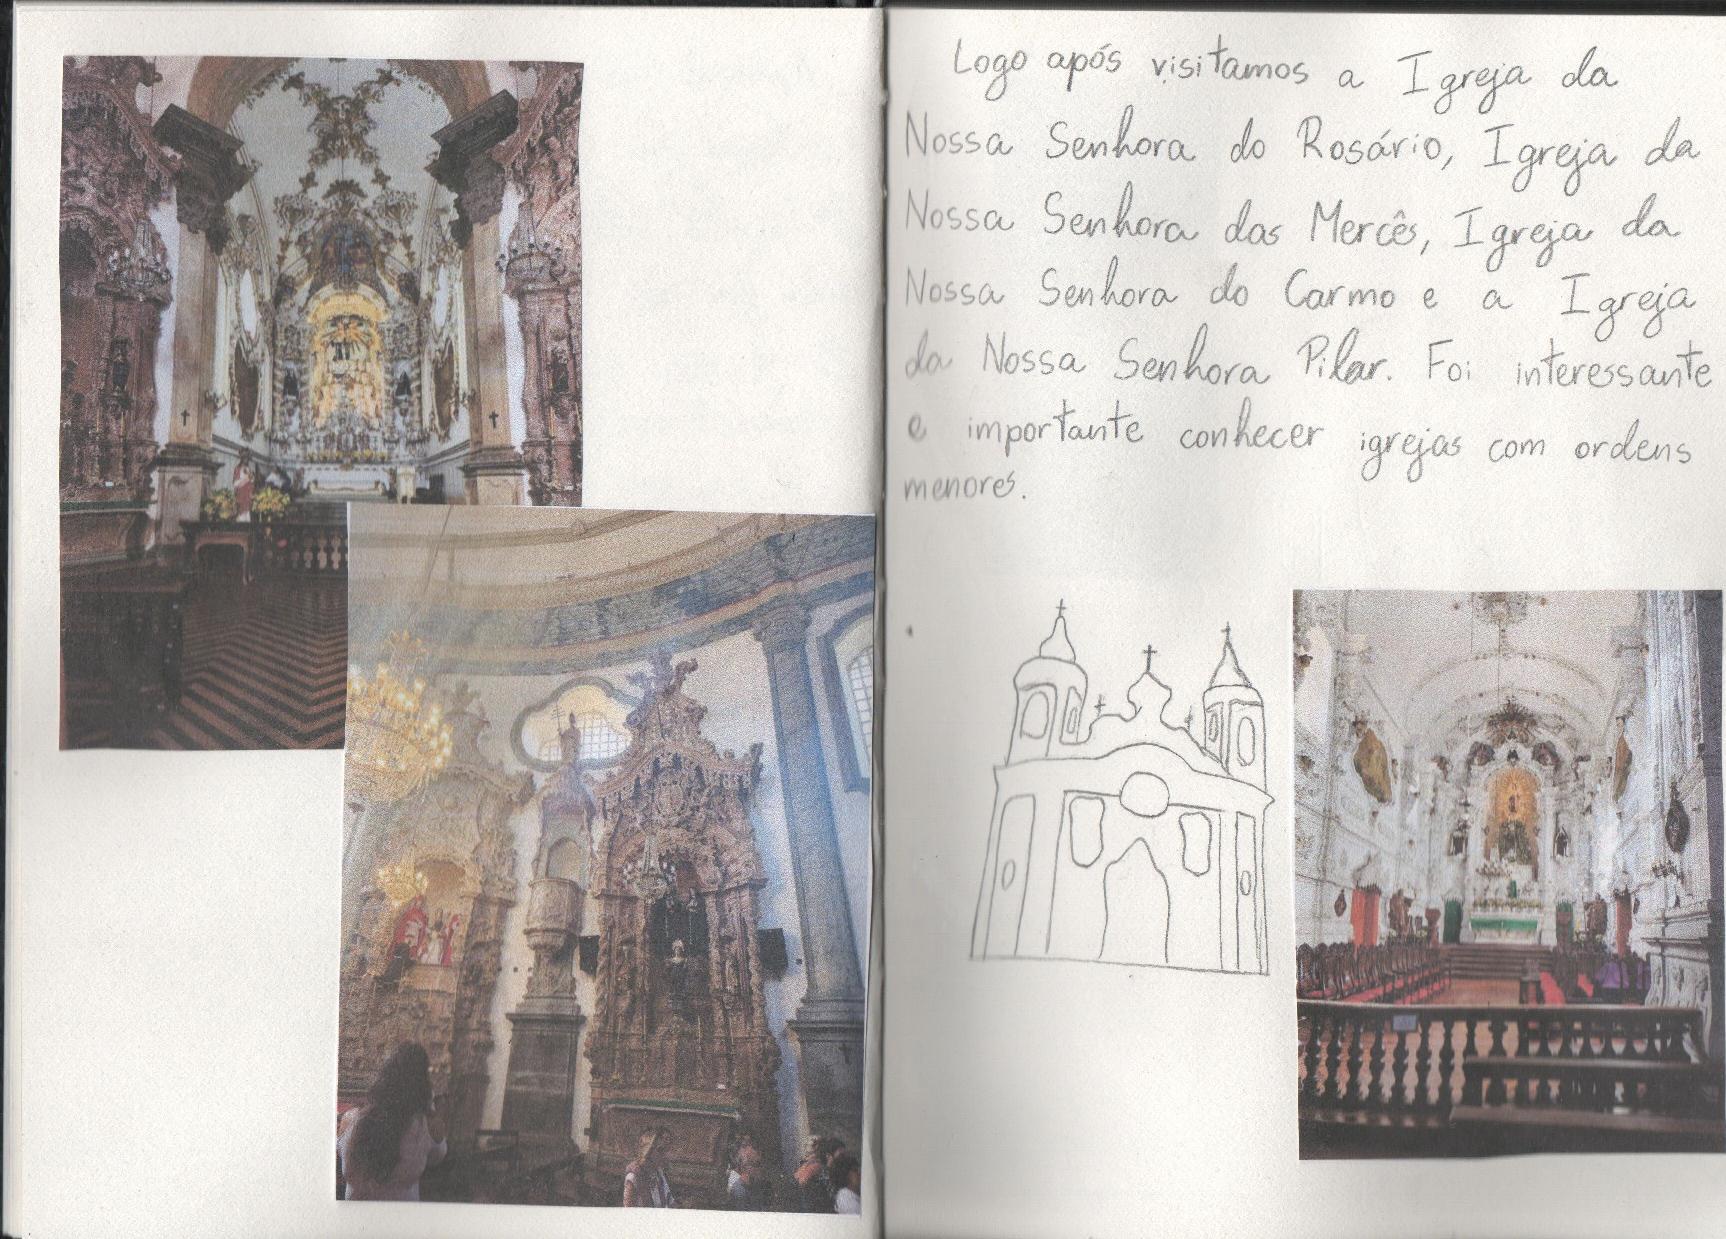 Logo após visitamos a Igreja da
Nossa Senhora do Rosário, Igreja da
Nossa Senhora das Mercês, Igreja da
Nossa Senhora do Carmo e a Igreja
da Nossa Senhora Pilar. Foi interessante
e importante conhecer igrejas com ordens
menores.